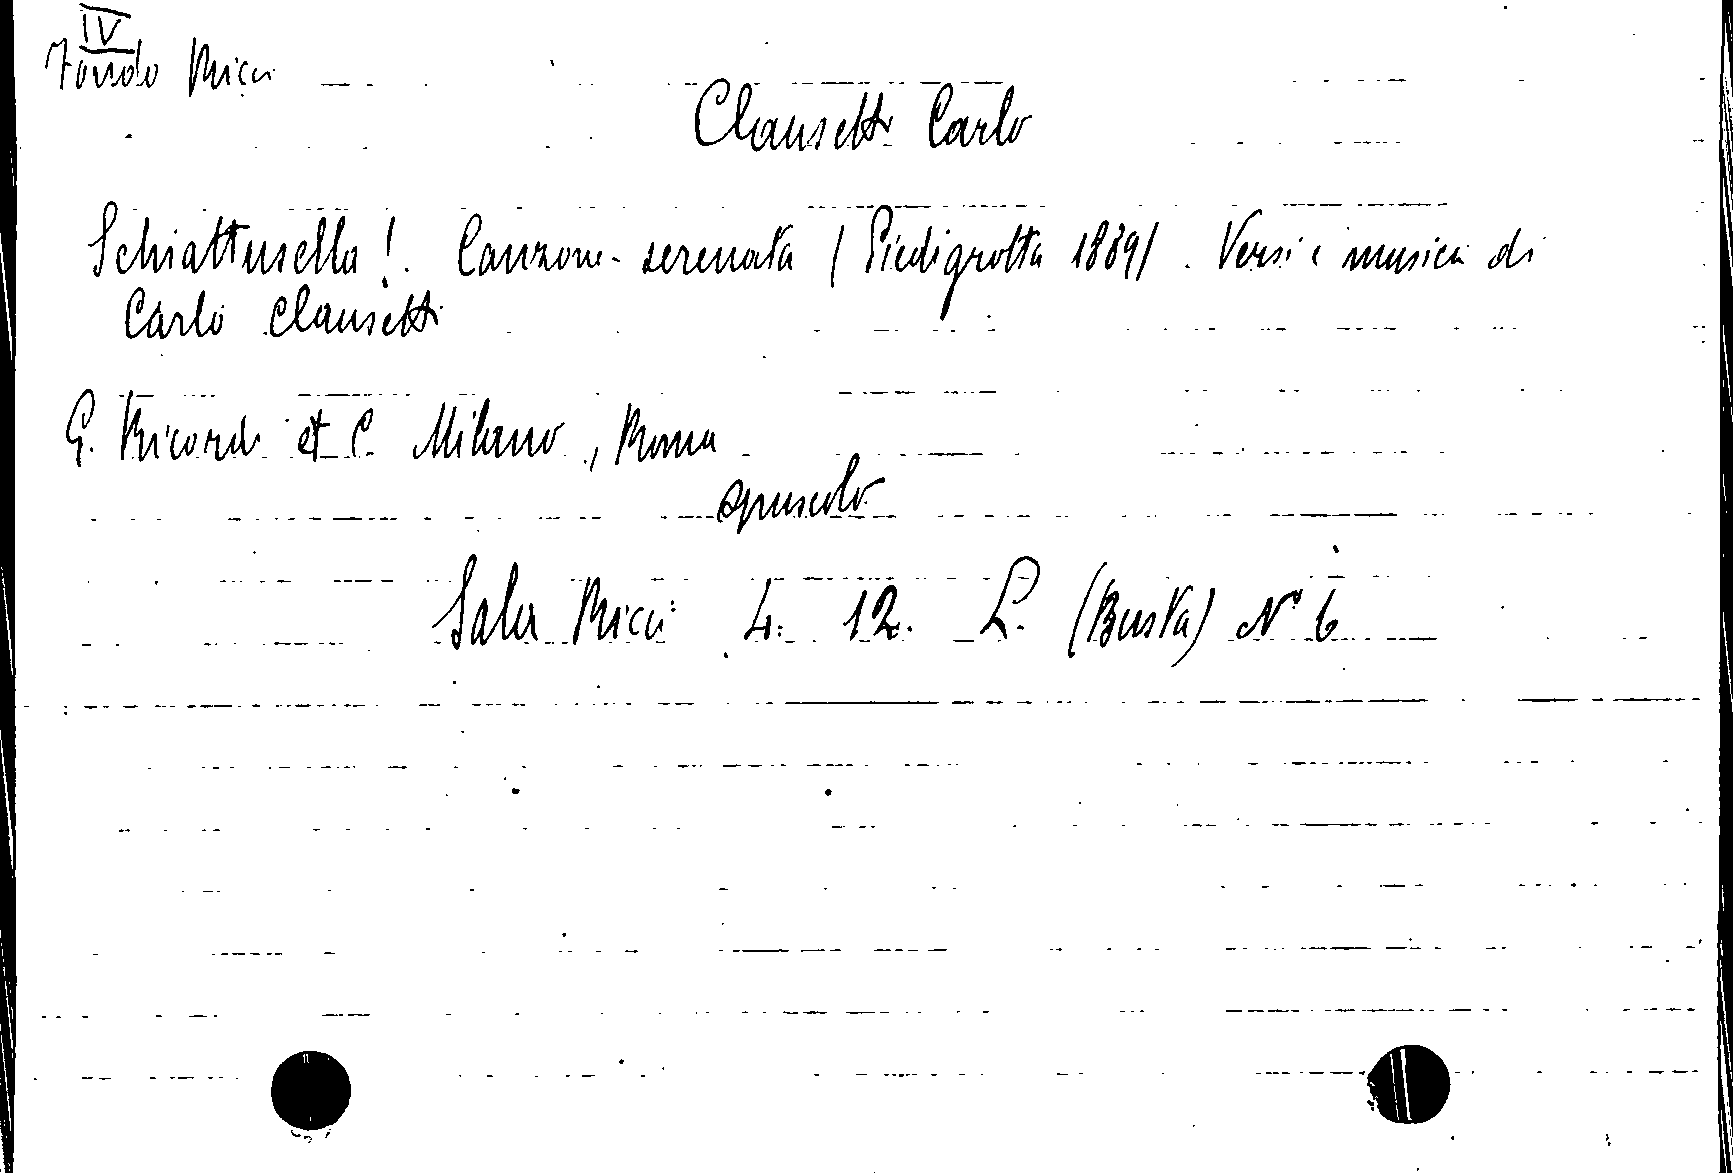 IV
Fondo Ricci
Clausetti Carlo
Schiattusella! Canzone-serenata (Piedigrotta 1889). Versi e musica di
Carlo Clausetti
G. Ricordi et C. Milano, Roma
opuscolo
Sala Ricci 4. 12. L. (Busta) N° 6